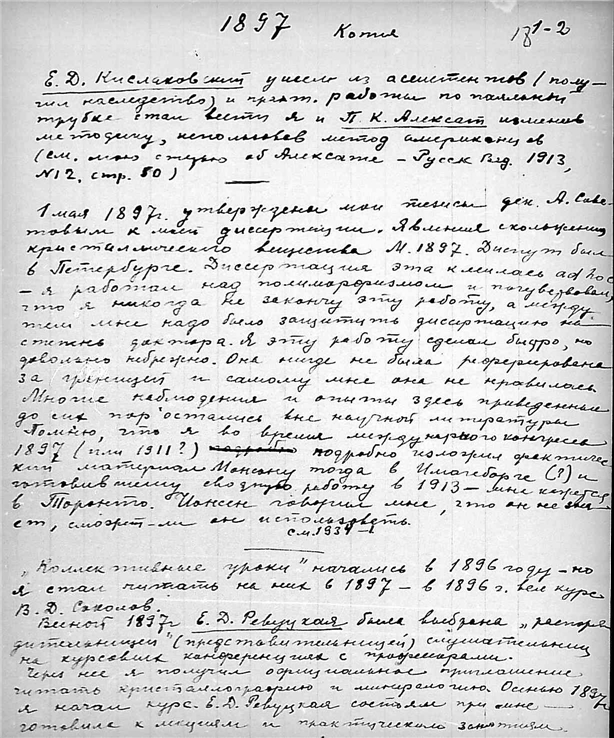 1897 Копия 1-2
Е. Д. Кислаковский ушел из ассистентов (полу-
чил наследство) и практ. работы по паяльной
трубке стал вести я и П. К. Алексат изменив
методику, использовав метод американцев
(см. мою статью об Алексате – Русск Вед. 1913,
N12, стр. 50)
1 мая 1897г. утверждены мои тезисы дек. А.
к моей диссертации. Явления скольжения
кристаллического вещества М. 1897. Диспут был
в Петербурге. Диссертация эта клеилась ad hoc
– я работал над полиморфизмом и почувствовал,
что я никогда не закончу эту работу, а между
тем мне надо было защитить диссертацию на
степень доктора. Я эту работу сделал быстро, но
довольно небрежно. Она нигде не была реферирована
за границей и самому мне она не нравилась
Многие наблюдения и опыты здесь приведенные
до сих пор остались вне научной литературы
Помню, что я во время международного конгресса
1897 (или 1911?) подробно изложил фактичес-
кий материал Ионсону тогда в (?) и
готовившему сводную работу в 1913 – мне кажется
в Торонто. Ионсен говорил мне, что он не зна-
ет, сможет-ли он использовать.
см. 1934
„Коллективные уроки" начались в 1896 году – но
я стал читать на них в 1897 – в 1896 г. вел курс
В. Д. Соколов.
Весной 1897г Е. Д. Ревуцкая была выбрана „распоря
дительницей" (представительницей) слушательниц
на курсовых конференциях с профессорами.
Через нее я получил официальное приглашение
читать кристаллографию и минералогию. Осенью 1897г
я начал курс. Е. Д. Ревуцкая состояла при мне –
готовила к лекциям и практическим занятиям.